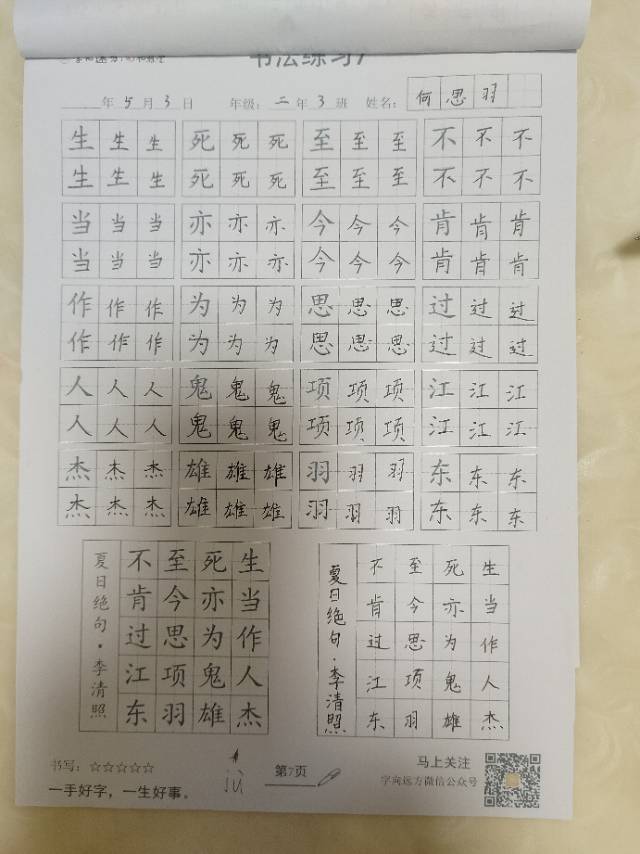 书法练习7
年 5 月 3 日 年级：二 年 3 班 姓名：何思羽
生 生 生 死 死 死 至 至 至 不 不 不
生 生 生 死 死 死 至 至 至 不 不 不
当 当 当 亦 亦 亦 今 今 今 肯 肯 肯
当 当 当 亦 亦 亦 今 今 今 肯 肯 肯
作 作 作 为 为 为 思 思 思 过 过 过
作 作 作 为 为 为 思 思 思 过 过 过
人 人 人 鬼 鬼 鬼 项 项 项 江 江 江
人 人 人 鬼 鬼 鬼 项 项 项 江 江 江
杰 杰 杰 雄 雄 雄 羽 羽 羽 东 东 东
杰 杰 杰 雄 雄 雄 羽 羽 羽 东 东 东
夏日绝句·李清照
生当作人杰
死亦为鬼雄
至今思项羽
不肯过江东
夏日绝句·李清照
生当作人杰
死亦为鬼雄
至今思项羽
不肯过江东
书写：☆☆☆☆☆
一手好字，一生好事。
第7页
马上关注
字向远方微信公众号